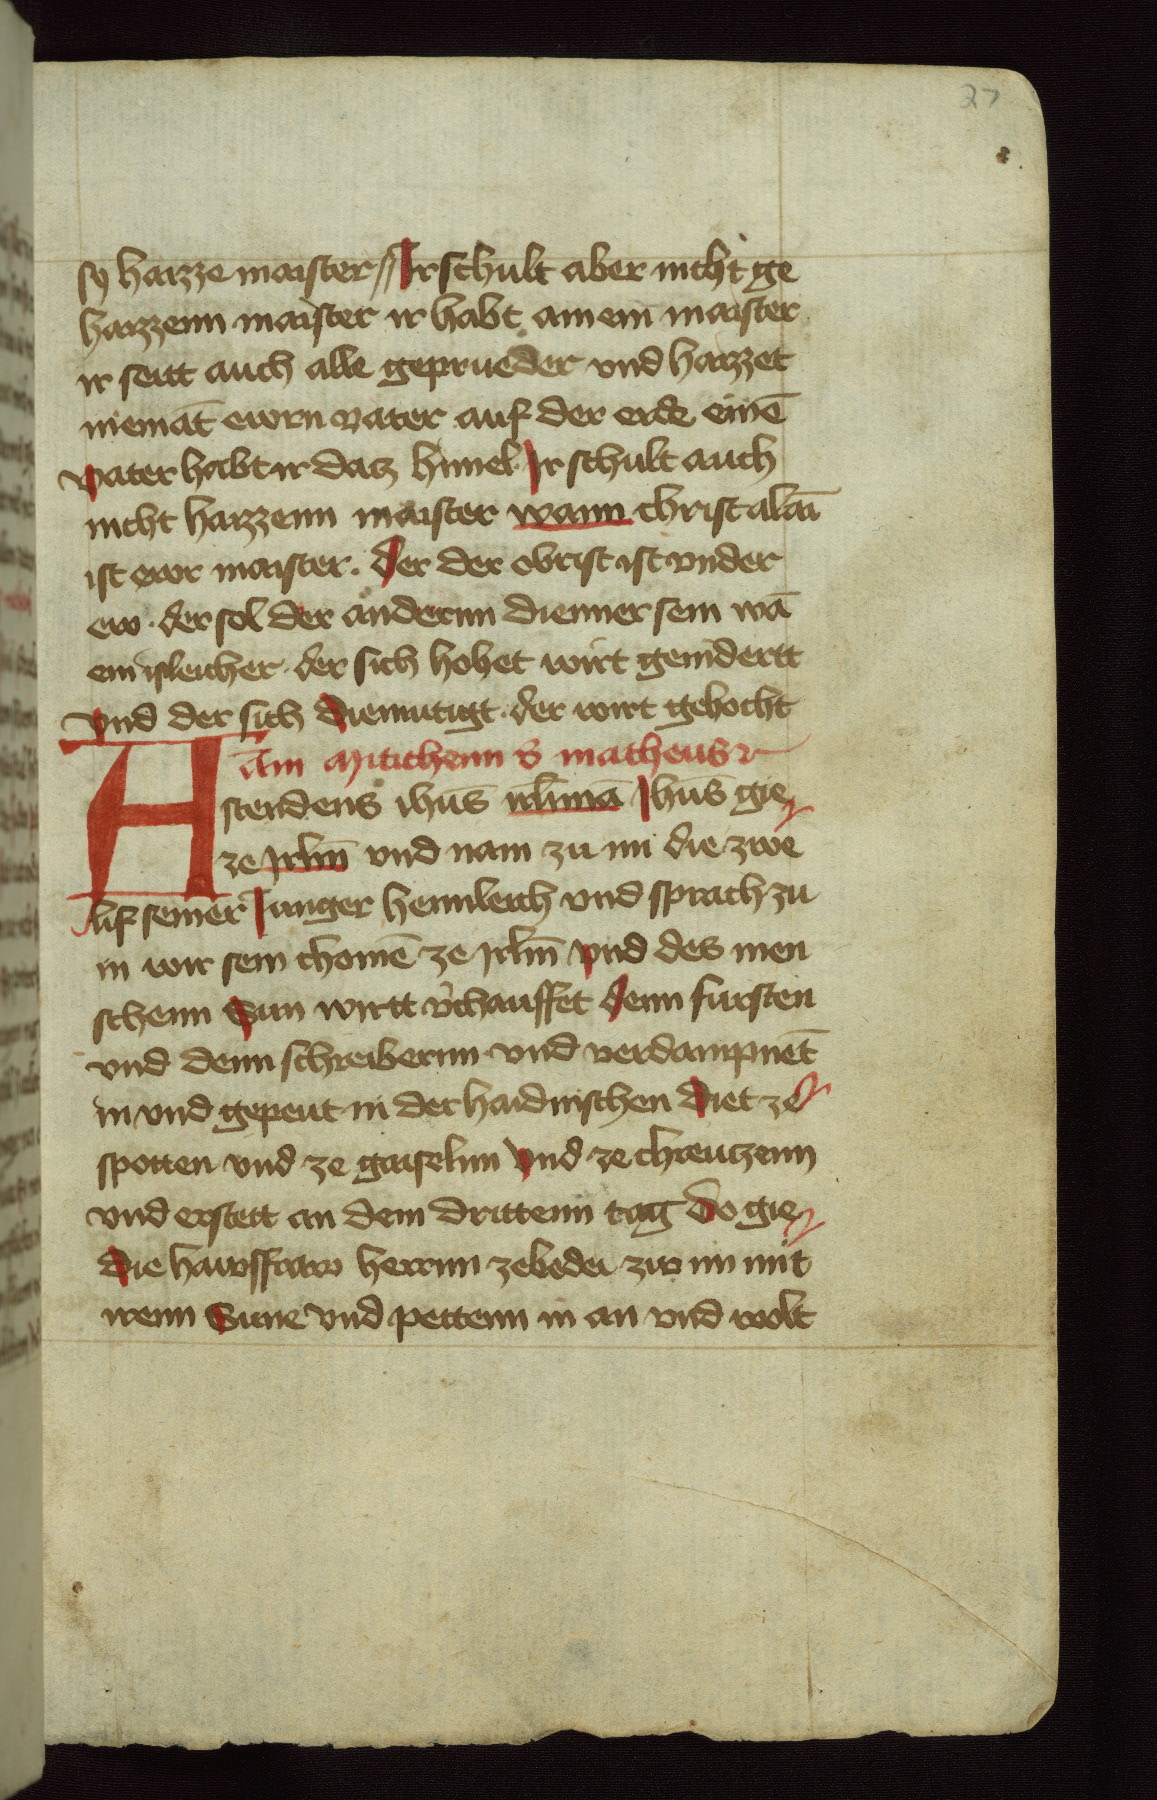 27
sy haizze maister // Ir schult aber nicht ge
haizzenn maister ir habt ainein maister
ir seitt auch alle geprueder vnd haizzet
niemāt ewrn vater auf der erde einē
vater habt ir datz himel Ir schult auch
nicht haizzenn maister wann christ alaī
ist ewr maister. der der obrist ist vnder
ew. der sol der andernn dienner sein wā
ein isleicher. der sich hohet wirt genidertt
vnd der sich diemutigt. der wirt gehocht
Am Mitichenn S matheus
Astendens ihūs irlimā Ihūs gie
ze Irlm̄ vnd nam zu im die zwe
lif seiner Iunger heimleich vnd sprach zu
in wir sein chomē ze Irlm̄ vnd des men
schenn Sun wirtt v̄chauffet denn fursten
vnd denn schreibernn vnd verdampnēt
in vnd gepeut in der haidnischen diet ze
spotten vnd ze gaiselnn vnd ze chreutzenn
vnd erstett an dem drittenn tag Do gie
die hawsfraw herrnn zebedei zw im mit
irenn Sune vnd pettenn in an vnd wolt